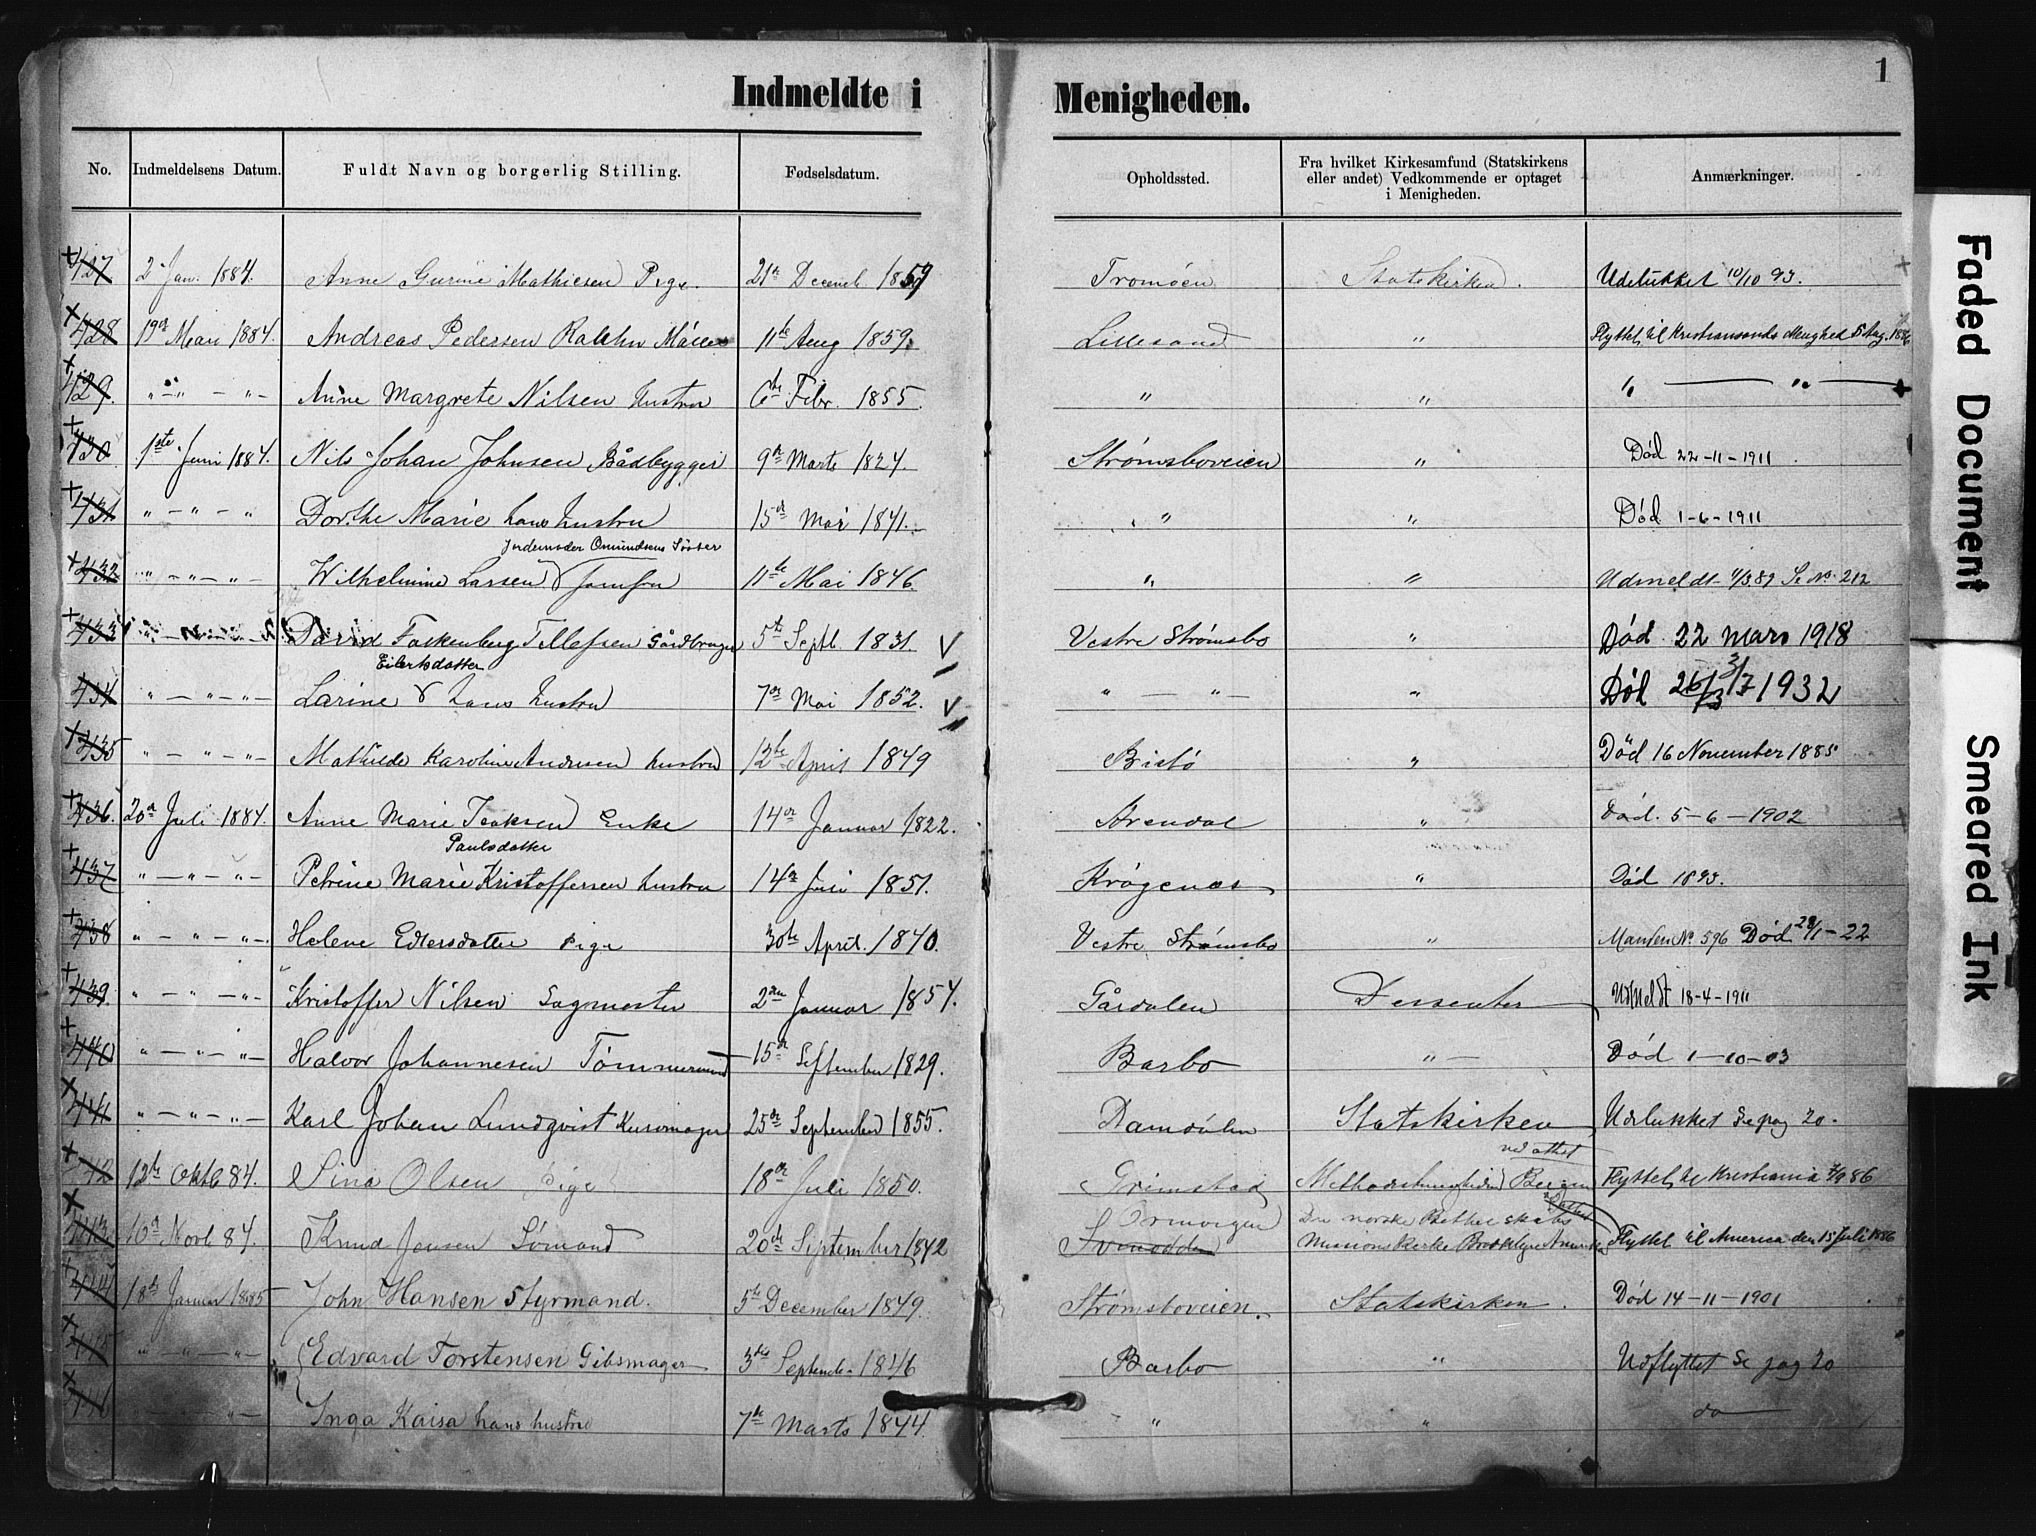 1
Indmeldte i Menigheden.
No. Indmeldelsens Datum. Fuldt Navn og borgerlig Stilling. Fødselsdatum. Opholdssted. Fra hvilket Kirkesamfund (Statskirkens eller andet) Vedkommende er optaget i Menigheden. Anmærkninger.
427 2 Jan. 1884. Anne Gurine Mathiesen Pige. 21de Decemb. 1859 Tromøen Statskirken. Udelukket 10/10 93.
428 19de Mars 1884. Andreas Pedersen 11te Aug 1859. Lillesand " Flyttet til Kristiansands Menighed 5 Aug. 1886
429. " - " - " - Anne Margrete Nilsen hustru 6te Febr. 1855. " " " — "
430 1ste Juni 1884. Nils Johan Johnsen Bådbygger 9de Marts 1824. Strømsboveien " Død 22-11-1911.
431 " - " - " Dorthe Marie hans hustru 15de Mai 1841. " " Død 1-6-1911
Jordemoder Omundsens Søster
432 " - " - " - Wilhelmine Larsen Jomfru 11te Mai 1846. " " Udmeldt 89 Se No 212
433 " - " - " - David Falkenberg Tellefsen Gårdbruger 5te Septb. 1831. V Vestre Strømsbo " Død 22 mars 1918
Eilertsdatter
434 " - " - " - Larine hans hustru 7de Mai 1852. V " — " — " Død 26/3 1932
435 " - " - " - Mathilde Karoline Andresen hustru 12te April 1849 Bisbo " Død 16 November 1885
436. 20de Juli 1884. Anne Marie Isaksen Enke 14de Januar 1822. Arendal " Død. 5-6-1902
Paulsdatter
437 " - " - " - Petrine Marie Kristoffersen hustru 14de Juni 1851. Krøgenæs " Død 1893.
438 " - " - " -. Helene Eilersdatter pige 30te April. 1840. Vestre Strømsbo " Manden No 596 Død 28/1-22
439 " - " - " - Kristoffer Nilsen Sagmester 2den Januar 1854. Gårdalen Dissenter Udmeldt 18-4-1911
440 " - " - " - Halvor Johannesen Tømmermand 15de September 1829. Barbo " — Død 1-10-03
441 " - " - " - Karl Johan Lundqvist Kurvmager 25de September 1855. Statskirken Udelukket Se pag 20.
442 12te Oktb 84. Sina Olsen pige 18de Juli 1850. Grimstad Methodistmenigheden Bergen Flyttet til Kristiania 86
443 10de Novb 84. Knud Jensen Sømand 20de September 1842 Den norske Bethelskabs
Missions Kirke Brooklyn Amerika Flyttet til America den 15 Juli 1886
444 18de Januar 1885 John Hansen Styrmand. 5te December 1849. Strømsboveien. Statskirken. Død 14-11-1901
445 " - " - " - Edvard Torstensen Gibsmager 3die September 1846 Barbo " Udflyttet Se pag 20
446 " - Inga Kaisa hans hustru 7de Marts 1844. " " do —
Faded Document
Smeared Ink